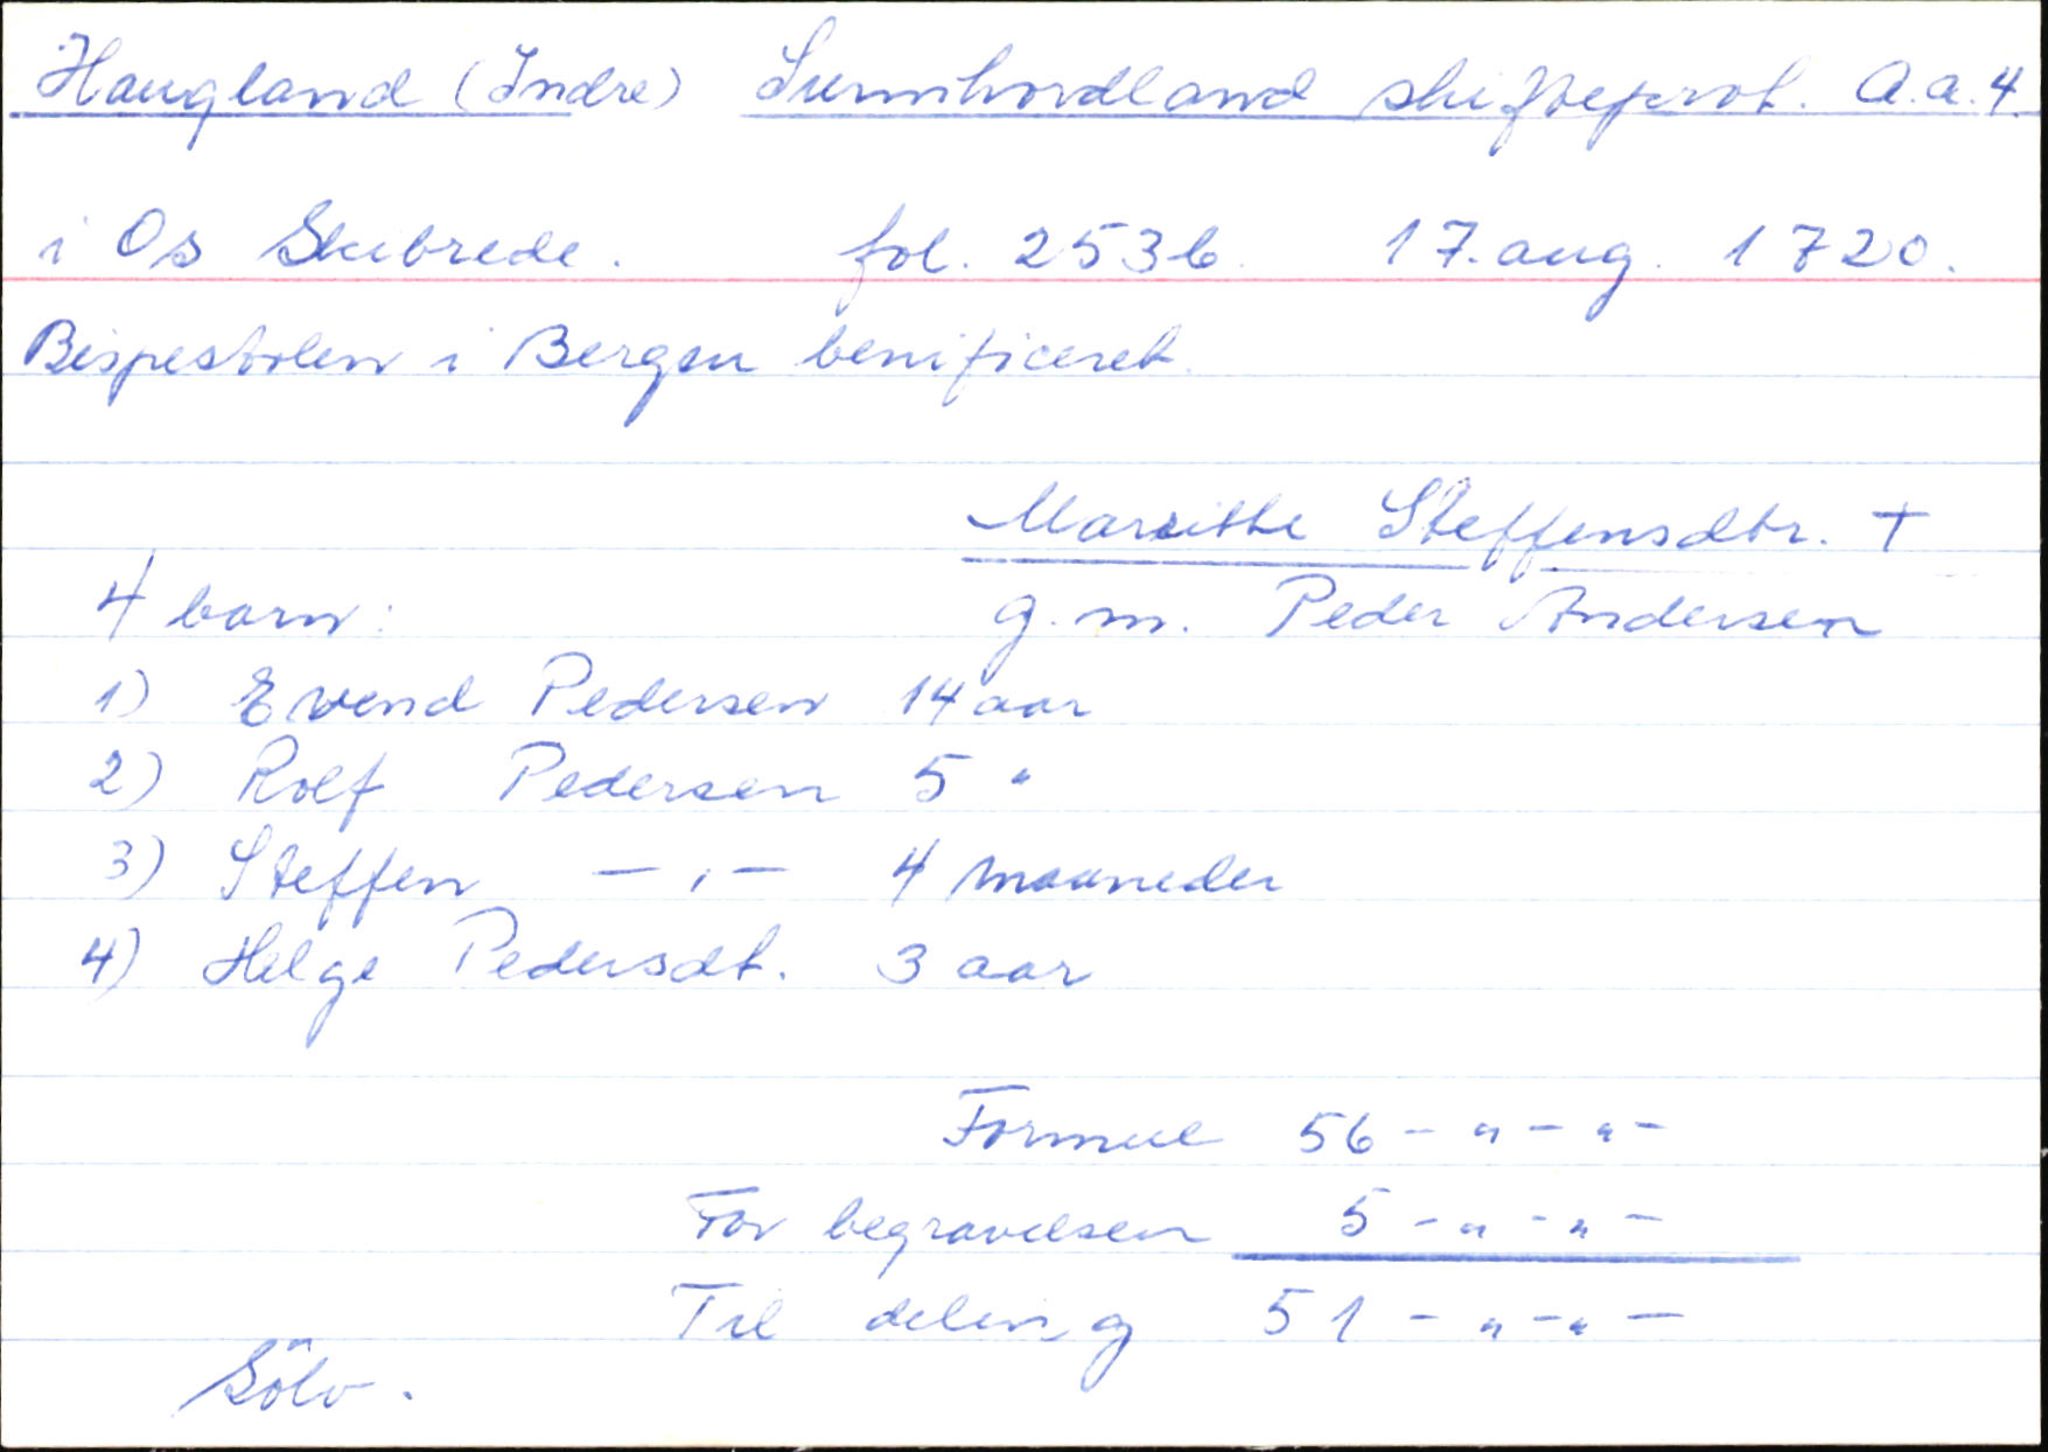 Haugland (Indre) Sunnhordland skifteprot. A.a.4.
i Os Skibrede. fol. 253b. 17. aug. 1720.
Bispestolen i Bergen benificeret.
Marithe Steffensdtr. +
4 barn: g.m. Peder Andersen
1) Evend Pedersen 14 aar
2) Rolf Pedersen 5 "
3) Steffen — " — 4 maaneder
4) Helge Pedersdt. 3 aar
Formue 56 - " - " -
For begravelsen 5 - " - " -
Til deling 51 - " - " -
Sölv.